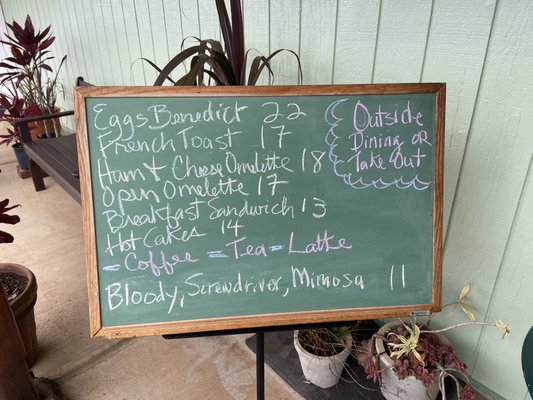 Eggs Benedict 22
French Toast 17
Ham & Cheese Omelette 18
Open Omelette 17
Breakfast Sandwich 13
Hot Cakes 14
- Coffee - Tea - Latte
Bloody, Screwdriver, Mimosa 11
Outside
Dining or
Take Out